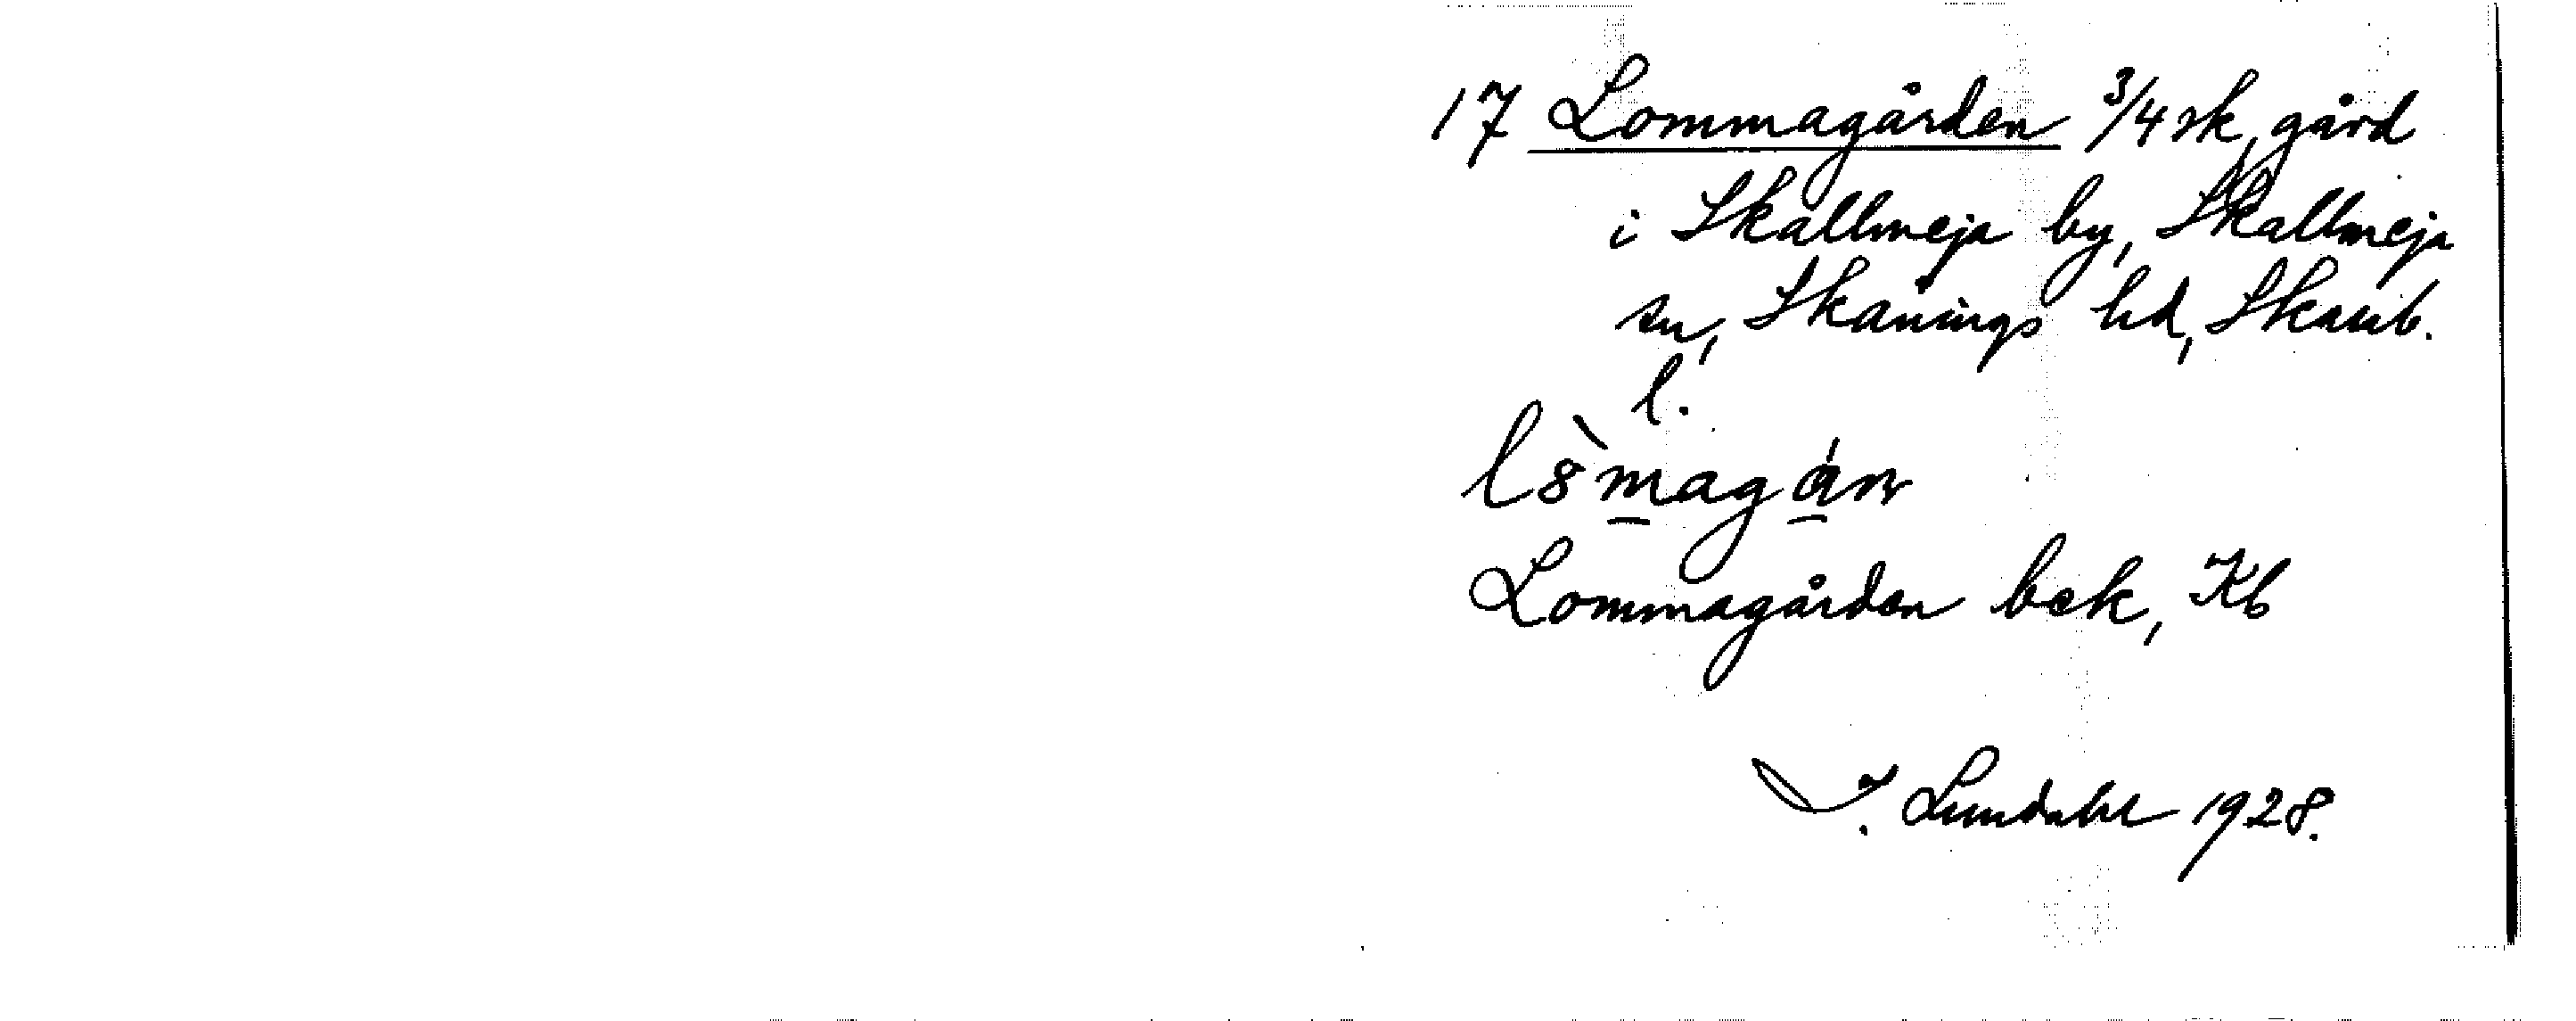 17 Lommagården 3/4 sk, gård
i Skallmeja by, Skallmeja
sn, Skånings hd, Skarab.
l.
l8̀magán
Lommagården bek, Kb
I. Lundahl 1928.